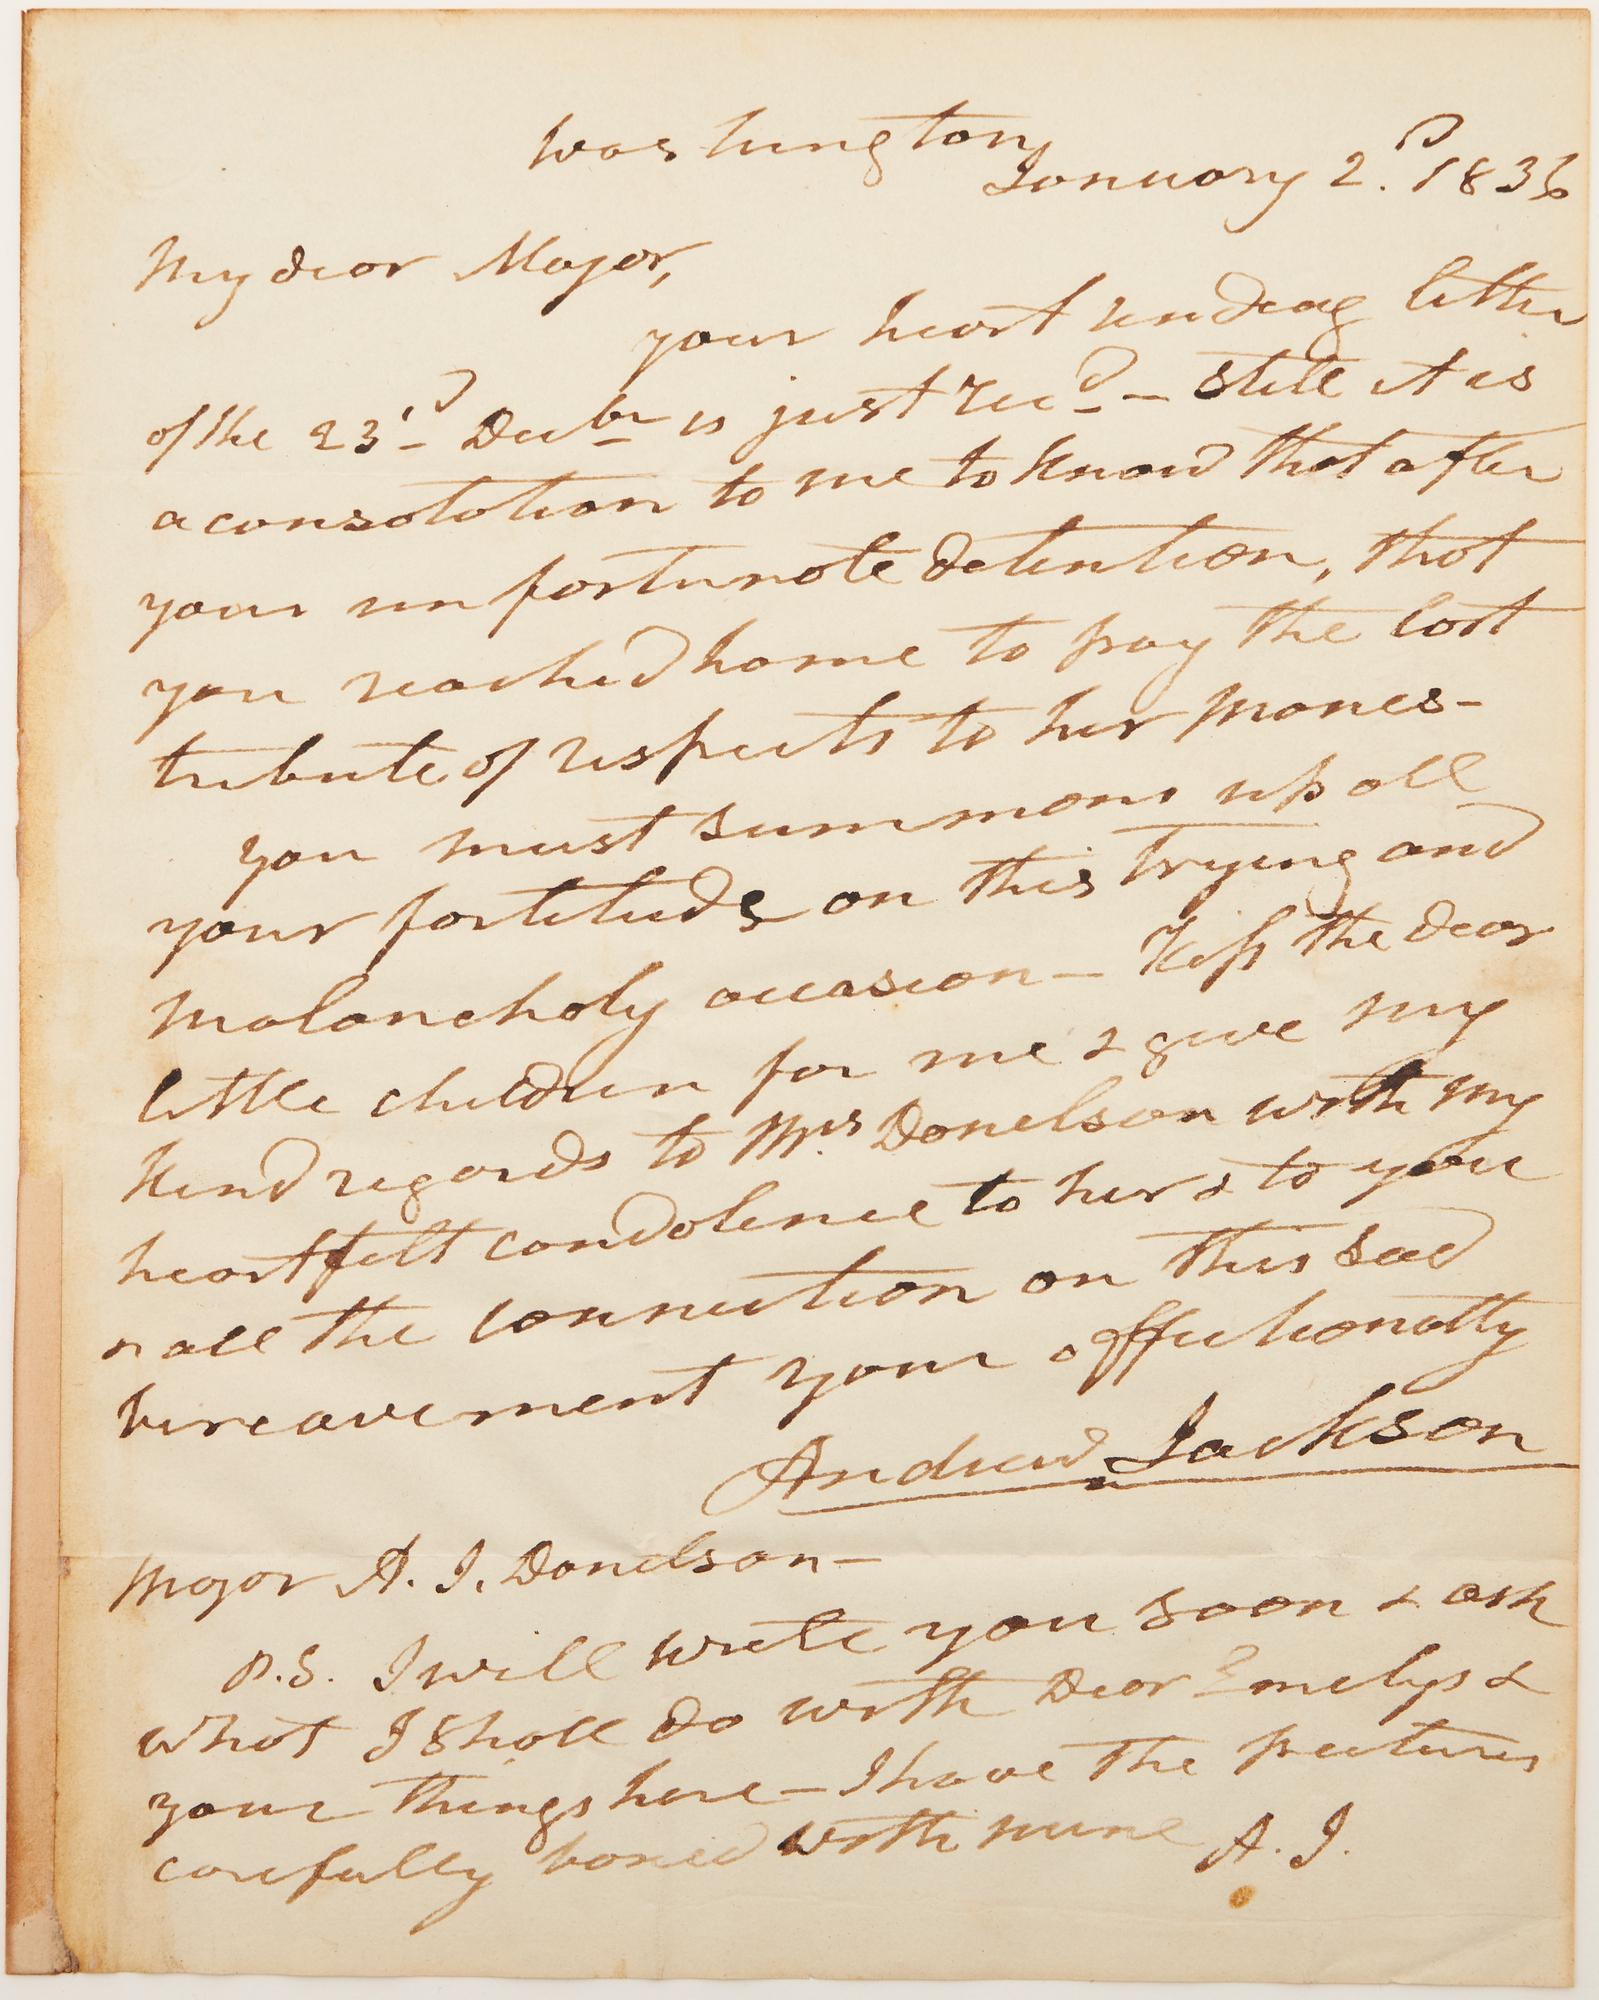 Washington,
January 2.d 1836
My dear Major,
your heart rending letter
of the 23'd Decbr is just recd. – still it is
a consolation to me to know that after
your unfortunate detention, that
you reached home to pay the last
tribute of respects to her manes–
you must summons up all
your fortitude on this trying and
malancholy occasion – Kiss the dear
little children for me & give my
kind regards to Mrs. Donelson with my
heartfelt condolence to her & to you
& all the connection on this sad
bereavement your affectionatly
Andrew Jackson
Major A. J. Donelson –
P.S. I will write you soon & ask
what I shall do with Dear Emelys &
your things here – I have the pictures
carefully boxed with mine A. J.